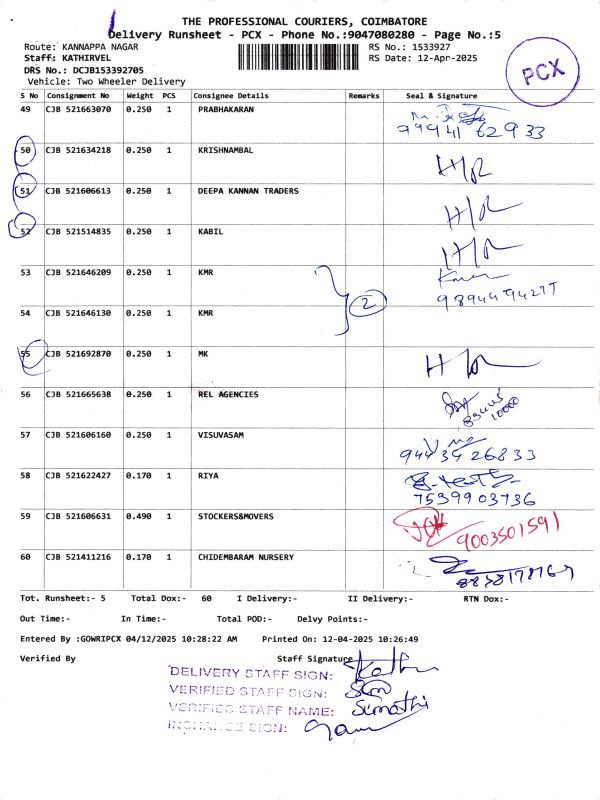 THE PROFESSIONAL COURIERS, COIMBATORE
Delivery Runsheet - PCX - Phone No.:9047080280 - Page No.:5
Route: KANNAPPA NAGAR RS No.: 1533927
Staff: KATHIRVEL RS Date: 12-Apr-2025
DRS No.: DCJB153392705
Vehicle: Two Wheeler Delivery
PCX
S No Consignment No Weight PCS Consignee Details Remarks Seal & Signature
49 CJB 521663070 0.250 1 PRABHAKARAN
99941 62933
50 CJB 521634218 0.250 1 KRISHNAMBAL
51 CJB 521606613 0.250 1 DEEPA KANNAN TRADERS
52 CJB 521514835 0.250 1 KABIL
53 CJB 521646209 0.250 1 KMR
2
54 CJB 521646130 0.250 1 KMR
55 CJB 521692870 0.250 1 MK
56 CJB 521665638 0.250 1 REL AGENCIES
10000
57 CJB 521606160 0.250 1 VISUVASAM
944 34 26833
58 CJB 521622427 0.170 1 RIYA
7539903736
59 CJB 521606631 0.490 1 STOCKERS&MOVERS
9003501591
60 CJB 521411216 0.170 1 CHIDEMBARAM NURSERY
Tot. Runsheet:- 5 Total Dox:- 60 I Delivery:- II Delivery:- RTN Dox:-
Out Time:- In Time:- Total POD:- Delvy Points:-
Entered By :GOWRIPCX 04/12/2025 10:28:22 AM Printed On: 12-04-2025 10:26:49
Verified By Staff Signature
DELIVERY STAFF SIGN:
VERIFIED STAFF SIGN:
VERIFIED STAFF NAME: Sumathi
INCHARGE SIGN: